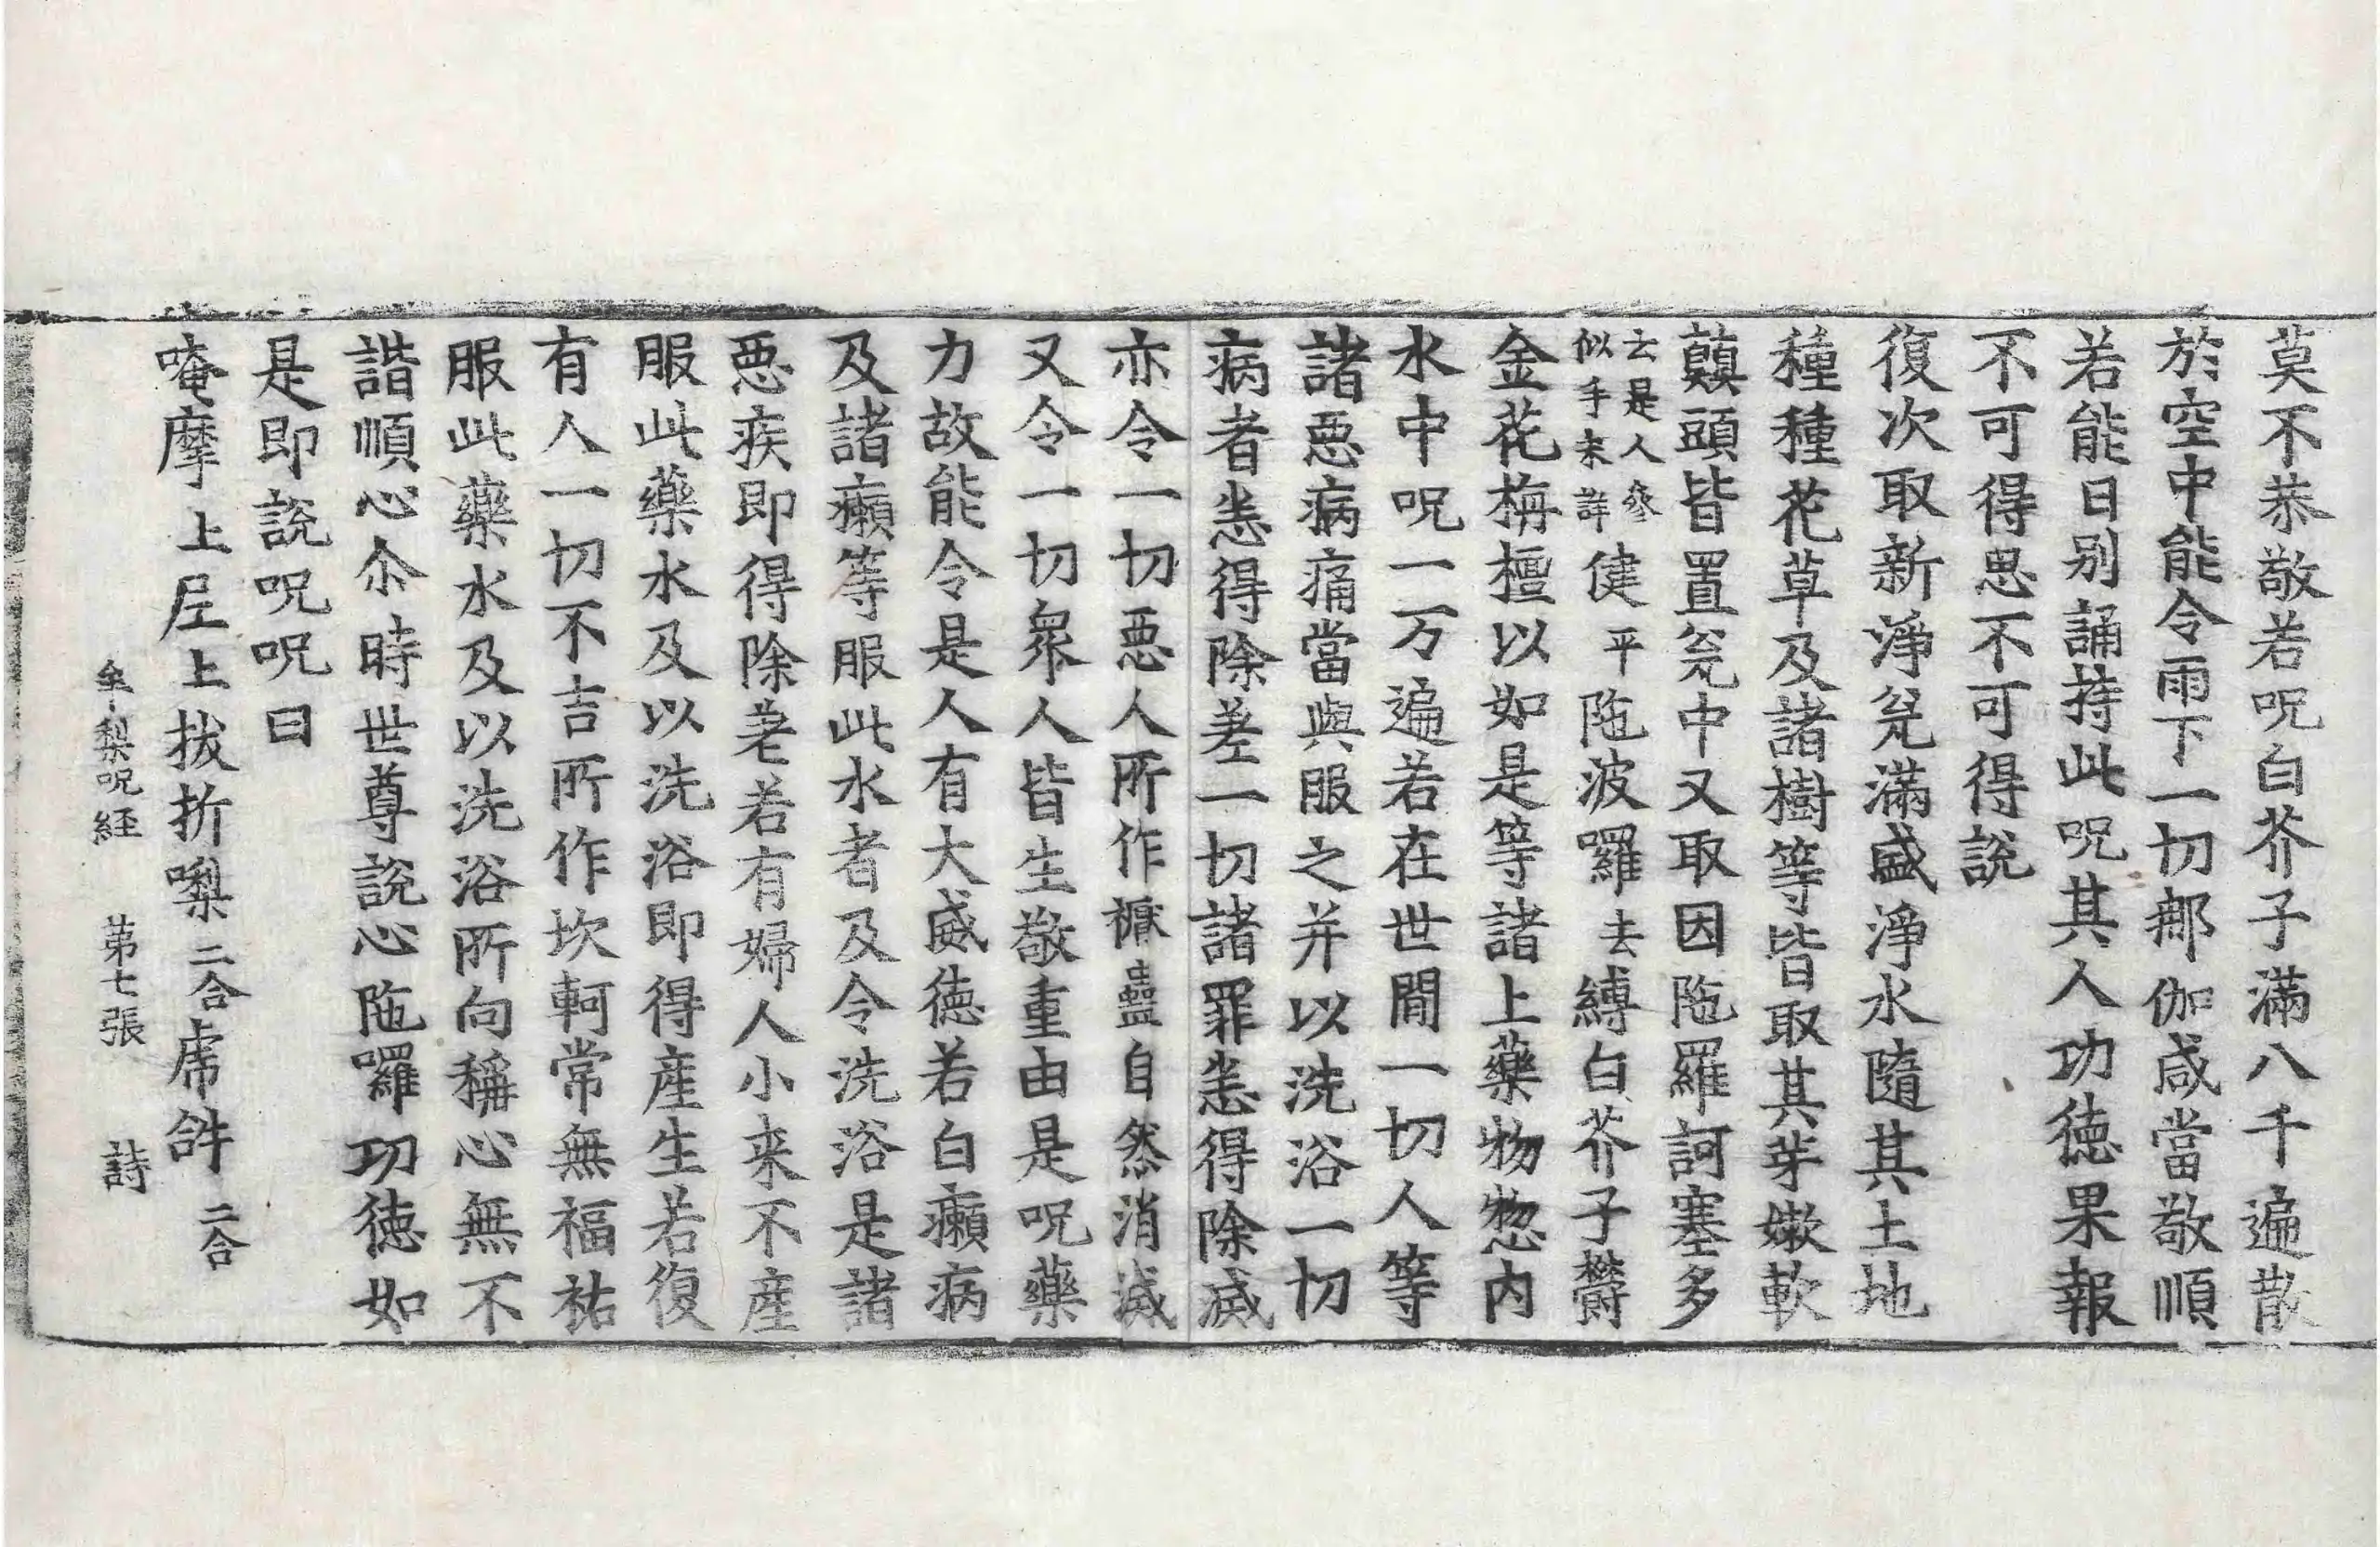 莫不恭敬若呪白芥子滿八千遍散
於空中能令雨下一切郍伽咸當敬順
若能日別誦持此呪其人功徳果報
不可得思不可得說
復次取新淨瓮滿盛淨水隨其土地
種種花草及諸樹等皆取其芽嫰軟
蘔頭皆置瓮中又取因陁羅訶塞多
云是人叅似手未詳健平陁波囉去縛白芥子欝
金花栴檀以如是等諸上藥物惣內
水中呪一万遍若在世間一切人等
諸惡病痛當與服之并以洗浴一切
病者恙得除差一切諸罪恙得除滅
亦令一切惡人所作禠蠱自然消滅
又令一切衆人皆生敬重由是呪藥
力故能令是人有大威徳若白癩病
及諸癩等服此水者及令洗浴是諸
惡疾即得除差若有婦人小来不産
服此藥水及以洗浴即得産生若復
有人一切不吉所作坎軻常無福祐
服此藥水及以洗浴所向稱心無不
諧順心尒時世尊說心陁囉功徳如
是即說呪呪曰
唵摩上𡰱上拔折㘑二合虎𤙖二合
牟梨呪経　第七張　詩